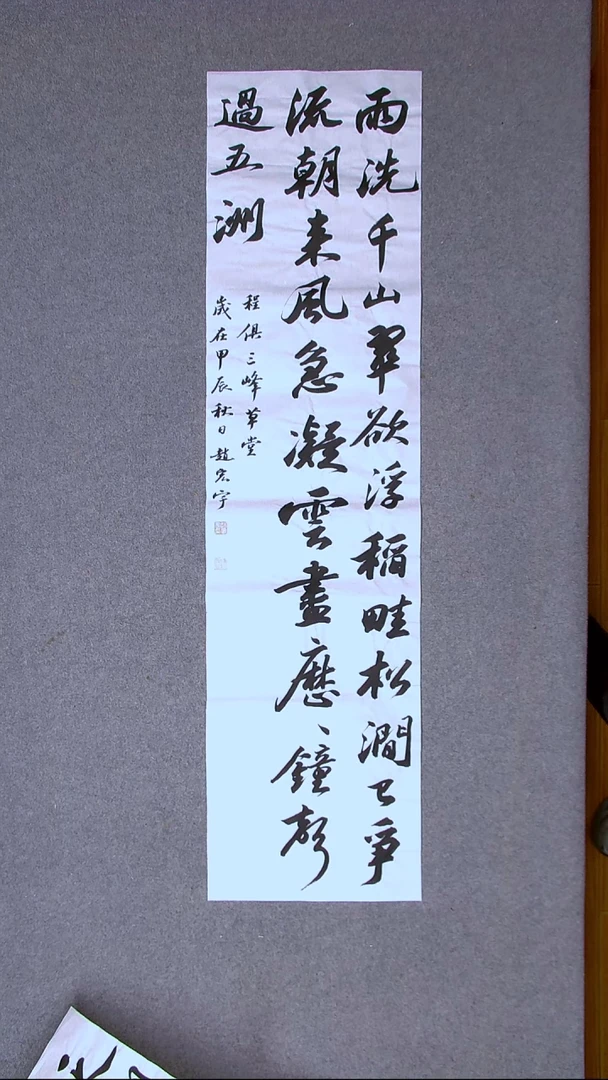 雨洗千山翠欲浮稻畦松澗已爭
流朝来風急凝雲盡歷、鐘聲
過五洲
程俱三峰草堂
歲在甲辰秋日趙宏宇